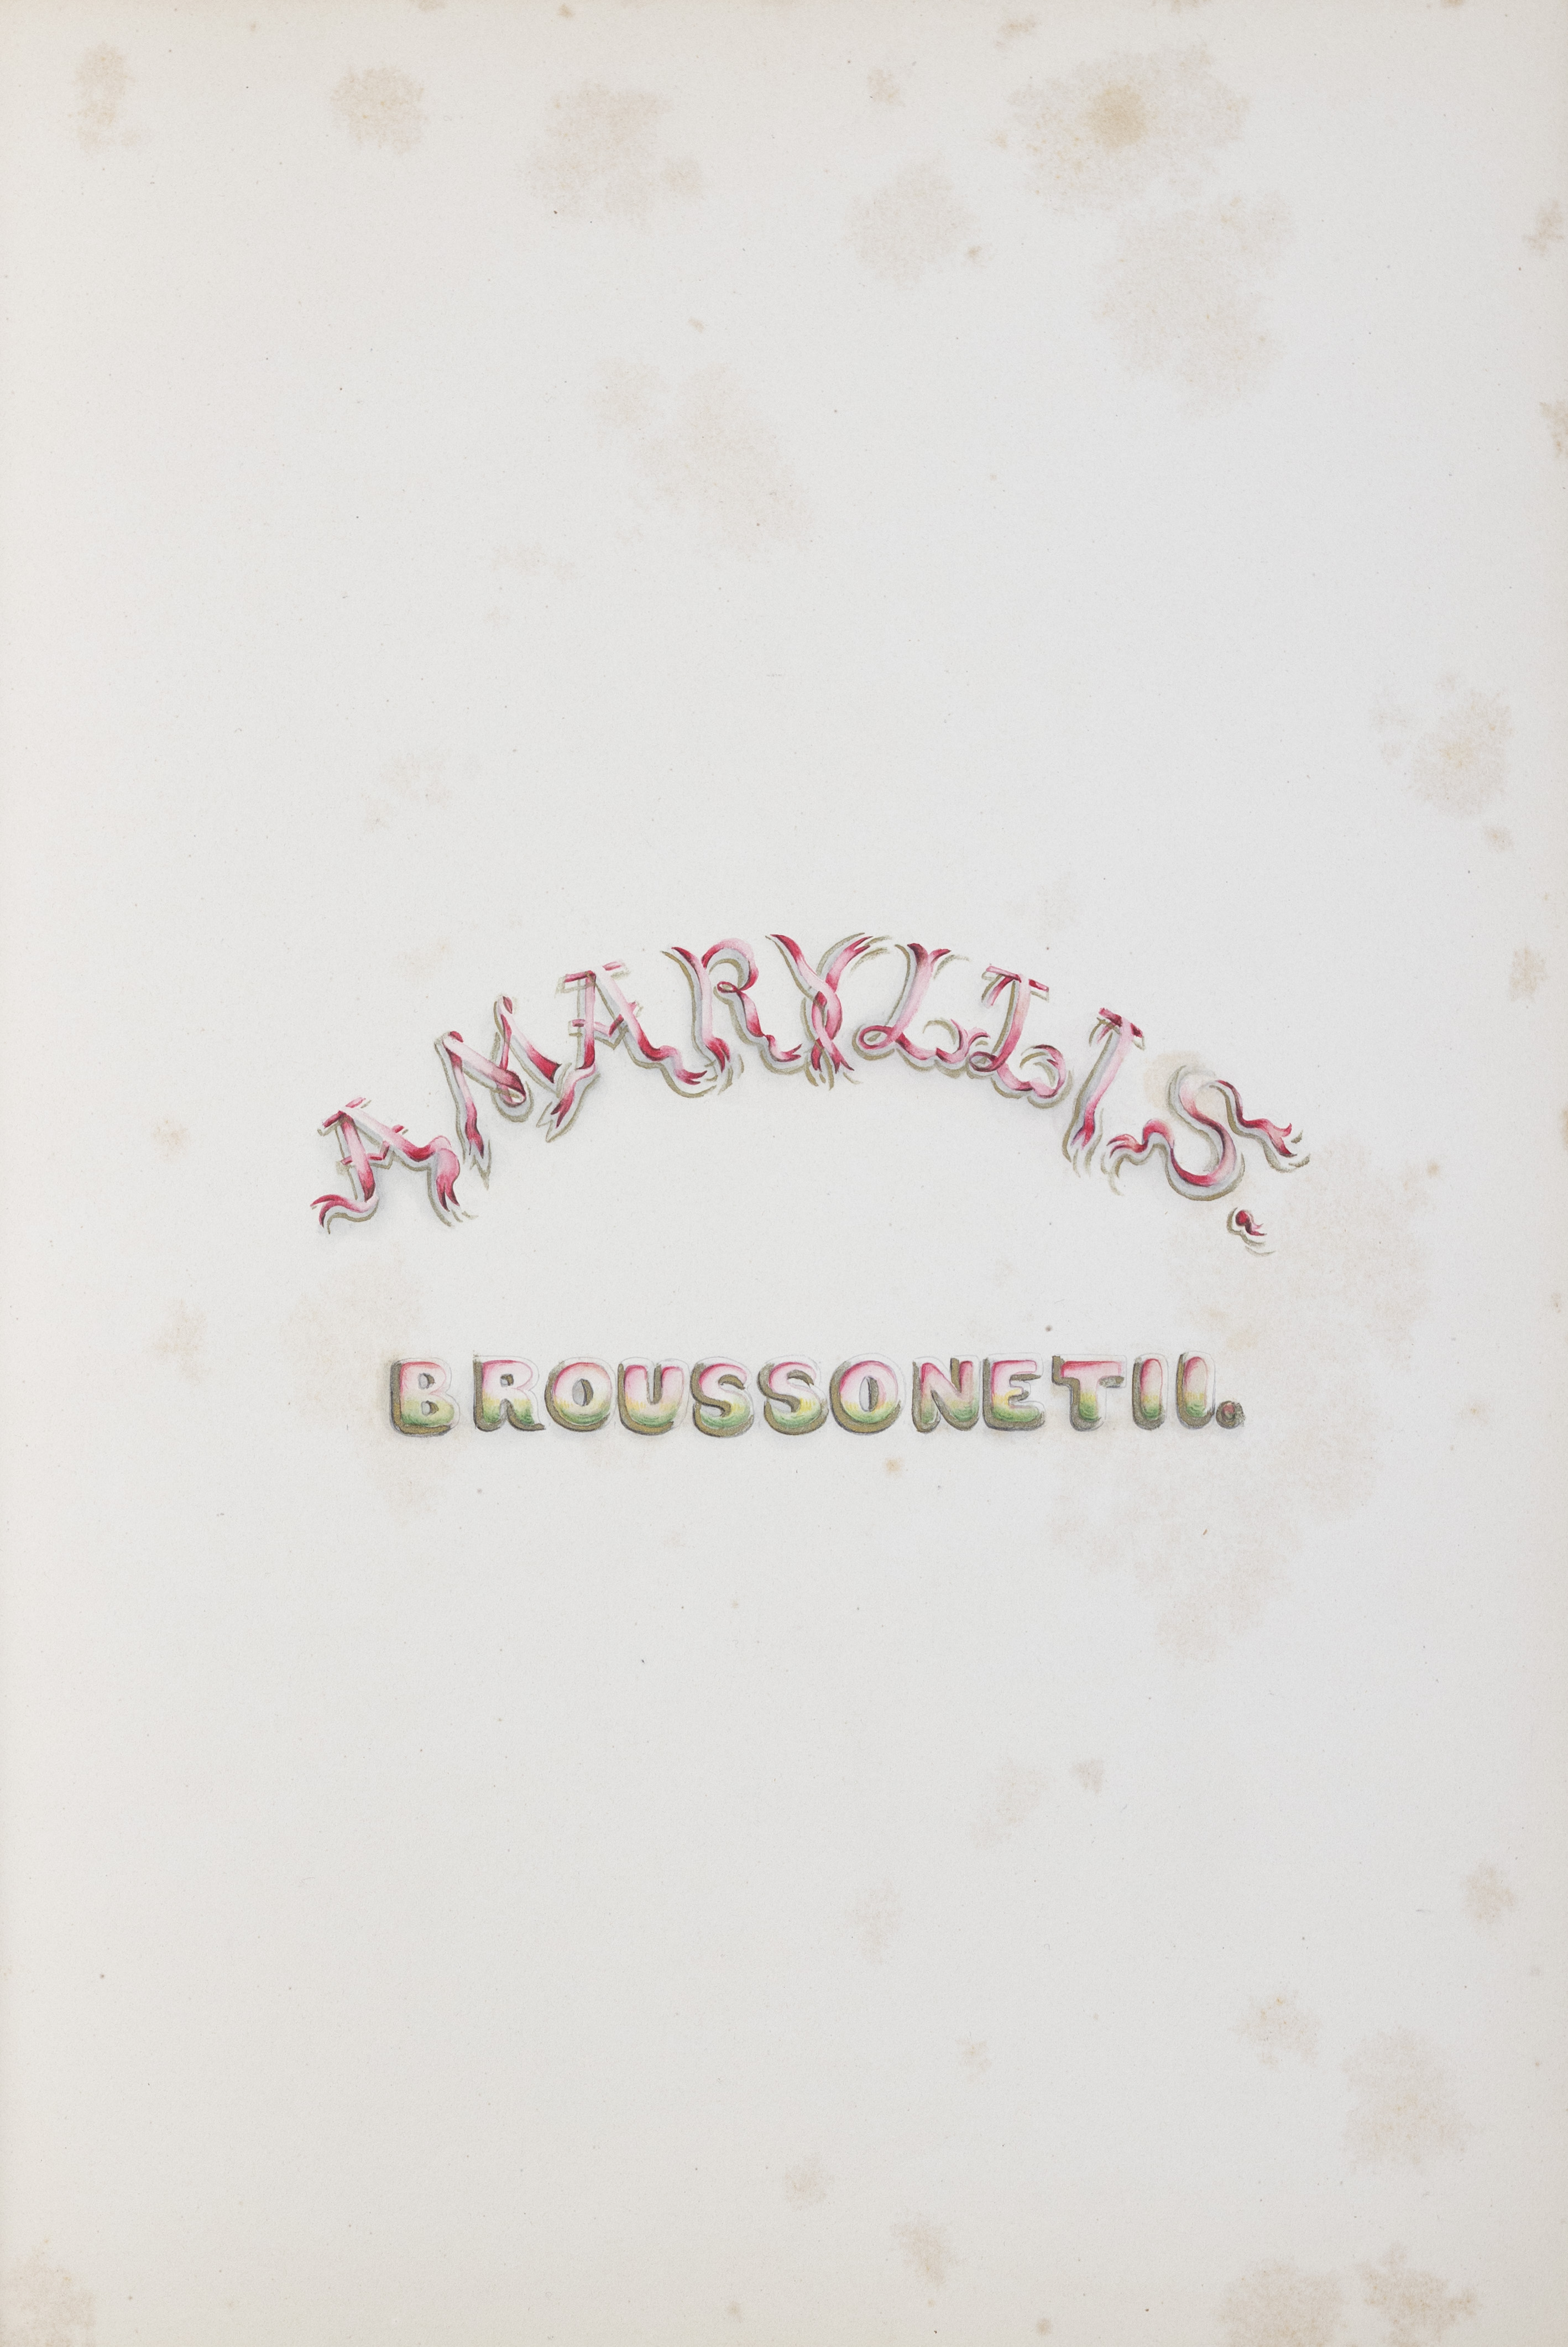 AMARYLLIS.
BROUSSONETII.